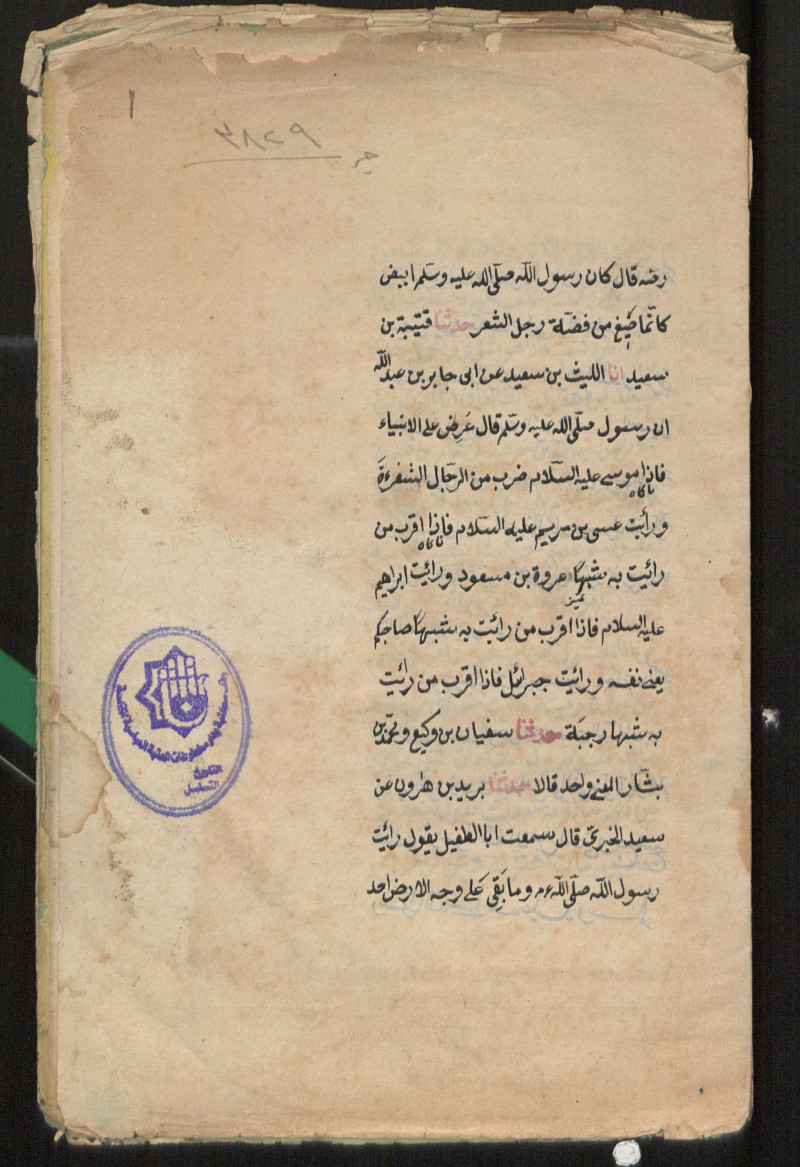 ١
٣٨٢٩
رضه قال كان رسول الله صلى الله عليه وسلم ابيض
كانما صيغ من فضلة رجل الشعر حدثنا قتيبة بن
سعيد انا الليث بن سعيد عن ابى جابر بن عبد الله
ان رسول صلى الله عليه وسلم قال عرض على الانبياء
فاذا موسى عليه السلام ضرب من الرجال
ورأيت عسى بن مريم عليه السلام فاذا اقرب من
رائيت به شبها عروة بن مسعود ورائيت ابراهيم
عليه السلام فاذا اقرب من رائيت به شبها صاحبكم
يعنى نفسه ورائيت جبرائل فاذا اقرب من رائيت
به شبها رجبة حدثنا سفيان بن وكيع ومحمد بن
بشار المعنى واحد قالا حدثنا بريد بن هرون عن
سعيد الخبرى قال سمعت ابا الطفيل يقول رائيت
رسول الله صلى الله ءم وما بقى على وجه الارض احد